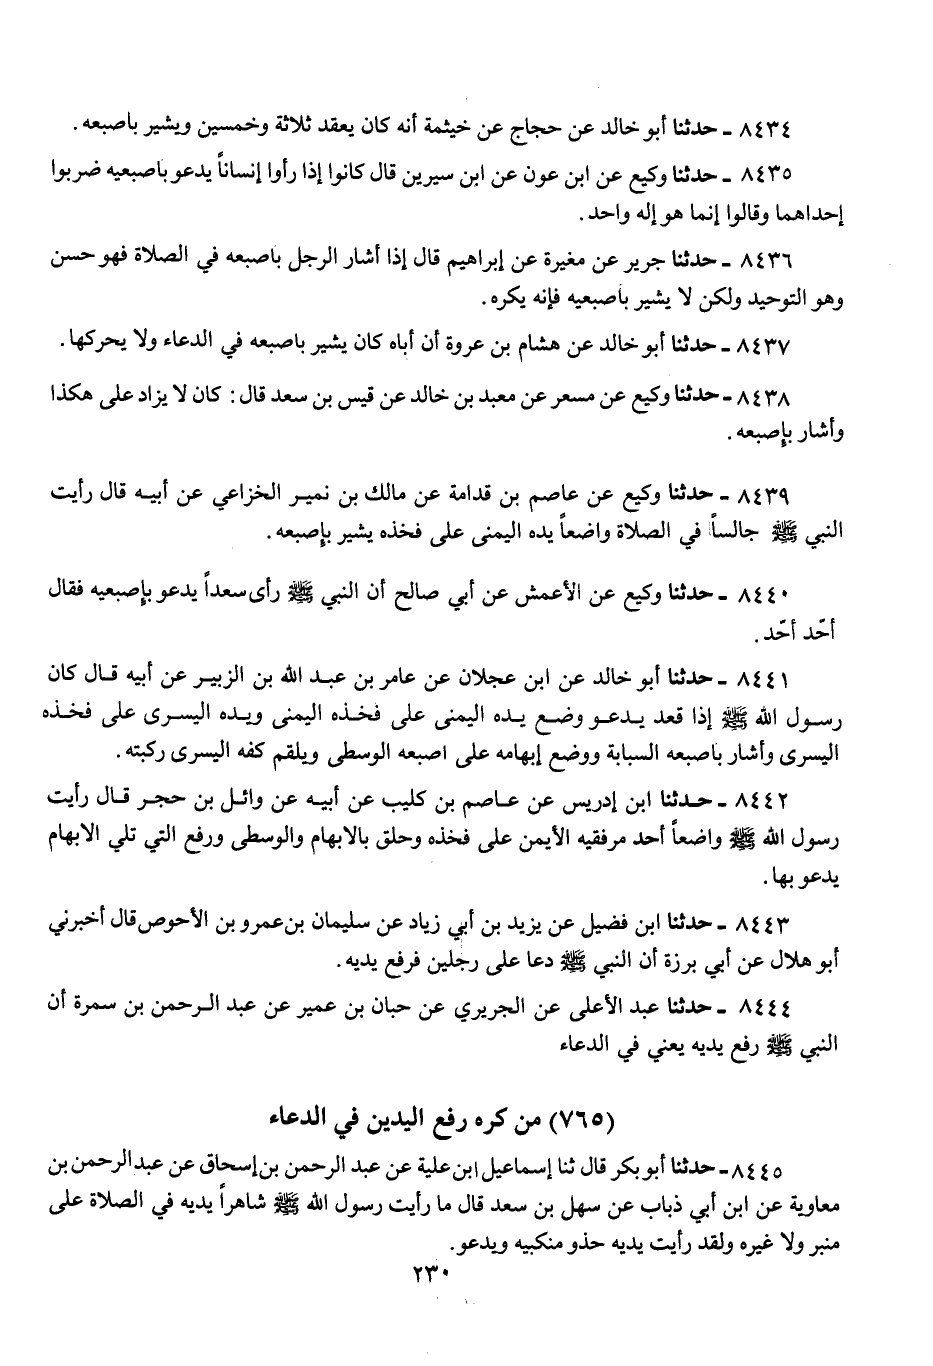 ٨٤٣٤ ـ حدثنا أبو خالد عن حجاج عن خيثمة أنه كان يعقد ثلاثة وخمسين ويشير باصبعه .
٨٤٣٥ ـ حدثنا وكيع عن ابن عون عن ابن سيرين قال كانوا إذا رأوا إنساناً يدعو باصبعيه ضربوا
إحداهما وقالوا إنما هو إله واحد .
٨٤٣٦ ـ حدثنا جرير عن مغيرة عن إبراهيم قال إذا أشار الرجل باصبعه في الصلاة فهو حسن
وهو التوحيد ولكن لا يشير بأصبعيه فإنه يكره .
٨٤٣٧ ـ حدثنا أبو خالد عن هشام بن عروة أن أباه كان يشير باصبعه في الدعاء ولا يحركها .
٨٤٣٨ ـ حدثنا وكيع عن مسعر عن معبد بن خالد عن قيس بن سعد قال : كان لا يزاد على هكذا
وأشار بإصبعه .
٨٤٣٩ ـ حدثنا وكيع عن عاصم بن قدامة عن مالك بن نمير الخزاعي عن أبيه قال رأيت
النبي ﷺ جالساً في الصلاة واضعاً يده اليمنى على فخذه يشير بإصبعه .
٨٤٤٠ ـ حدثنا وكيع عن الأعمش عن أبي صالح أن النبي ﷺ رأى سعداً يدعو بإصبعيه فقال
أحّد أحّد .
٨٤٤١ ـ حدثنا أبو خالد عن ابن عجلان عن عامر بن عبد الله بن الزبير عن أبيه قال كان
رسول الله ﷺ إذا قعد يدعو وضع يده اليمنى على فخذه اليمنى ويده اليسرى على فخذه
اليسرى وأشار باصبعه السبابة ووضع إبهامه على اصبعه الوسطى ويلقم كفه اليسرى ركبته .
٨٤٤٢ ـ حدثنا ابن إدريس عن عاصم بن كليب عن أبيه عن وائل بن حجر قال رأيت
رسول الله ﷺ واضعاً أحد مرفقيه الأيمن على فخذه وحلق بالابهام والوسطى ورفع التي تلي الابهام
يدعو بها .
٨٤٤٣ ـ حدثنا ابن فضيل عن يزيد بن أبي زياد عن سليمان بن عمرو بن الأحوص قال أخبرني
أبو هلال عن أبي برزة أن النبي ﷺ دعا على رجلين فرفع يديه .
٨٤٤٤ ـ حدثنا عبد الأعلى عن الجريري عن حبان بن عمير عن عبد الرحمن بن سمرة أن
النبي ﷺ رفع يديه يعني في الدعاء
(٧٦٥) من كره رفع اليدين في الدعاء
٨٤٤٥ ـ حدثنا أبو بكر قال ثنا إسماعيل ابن علية عن عبد الرحمن بن إسحاق عن عبد الرحمن بن
معاوية عن ابن أبي ذباب عن سهل بن سعد قال ما رأيت رسول الله ﷺ شاهراً يديه في الصلاة على
منبر ولا غيره ولقد رأيت يديه حذو منكبيه ويدعو .
٢٣٠